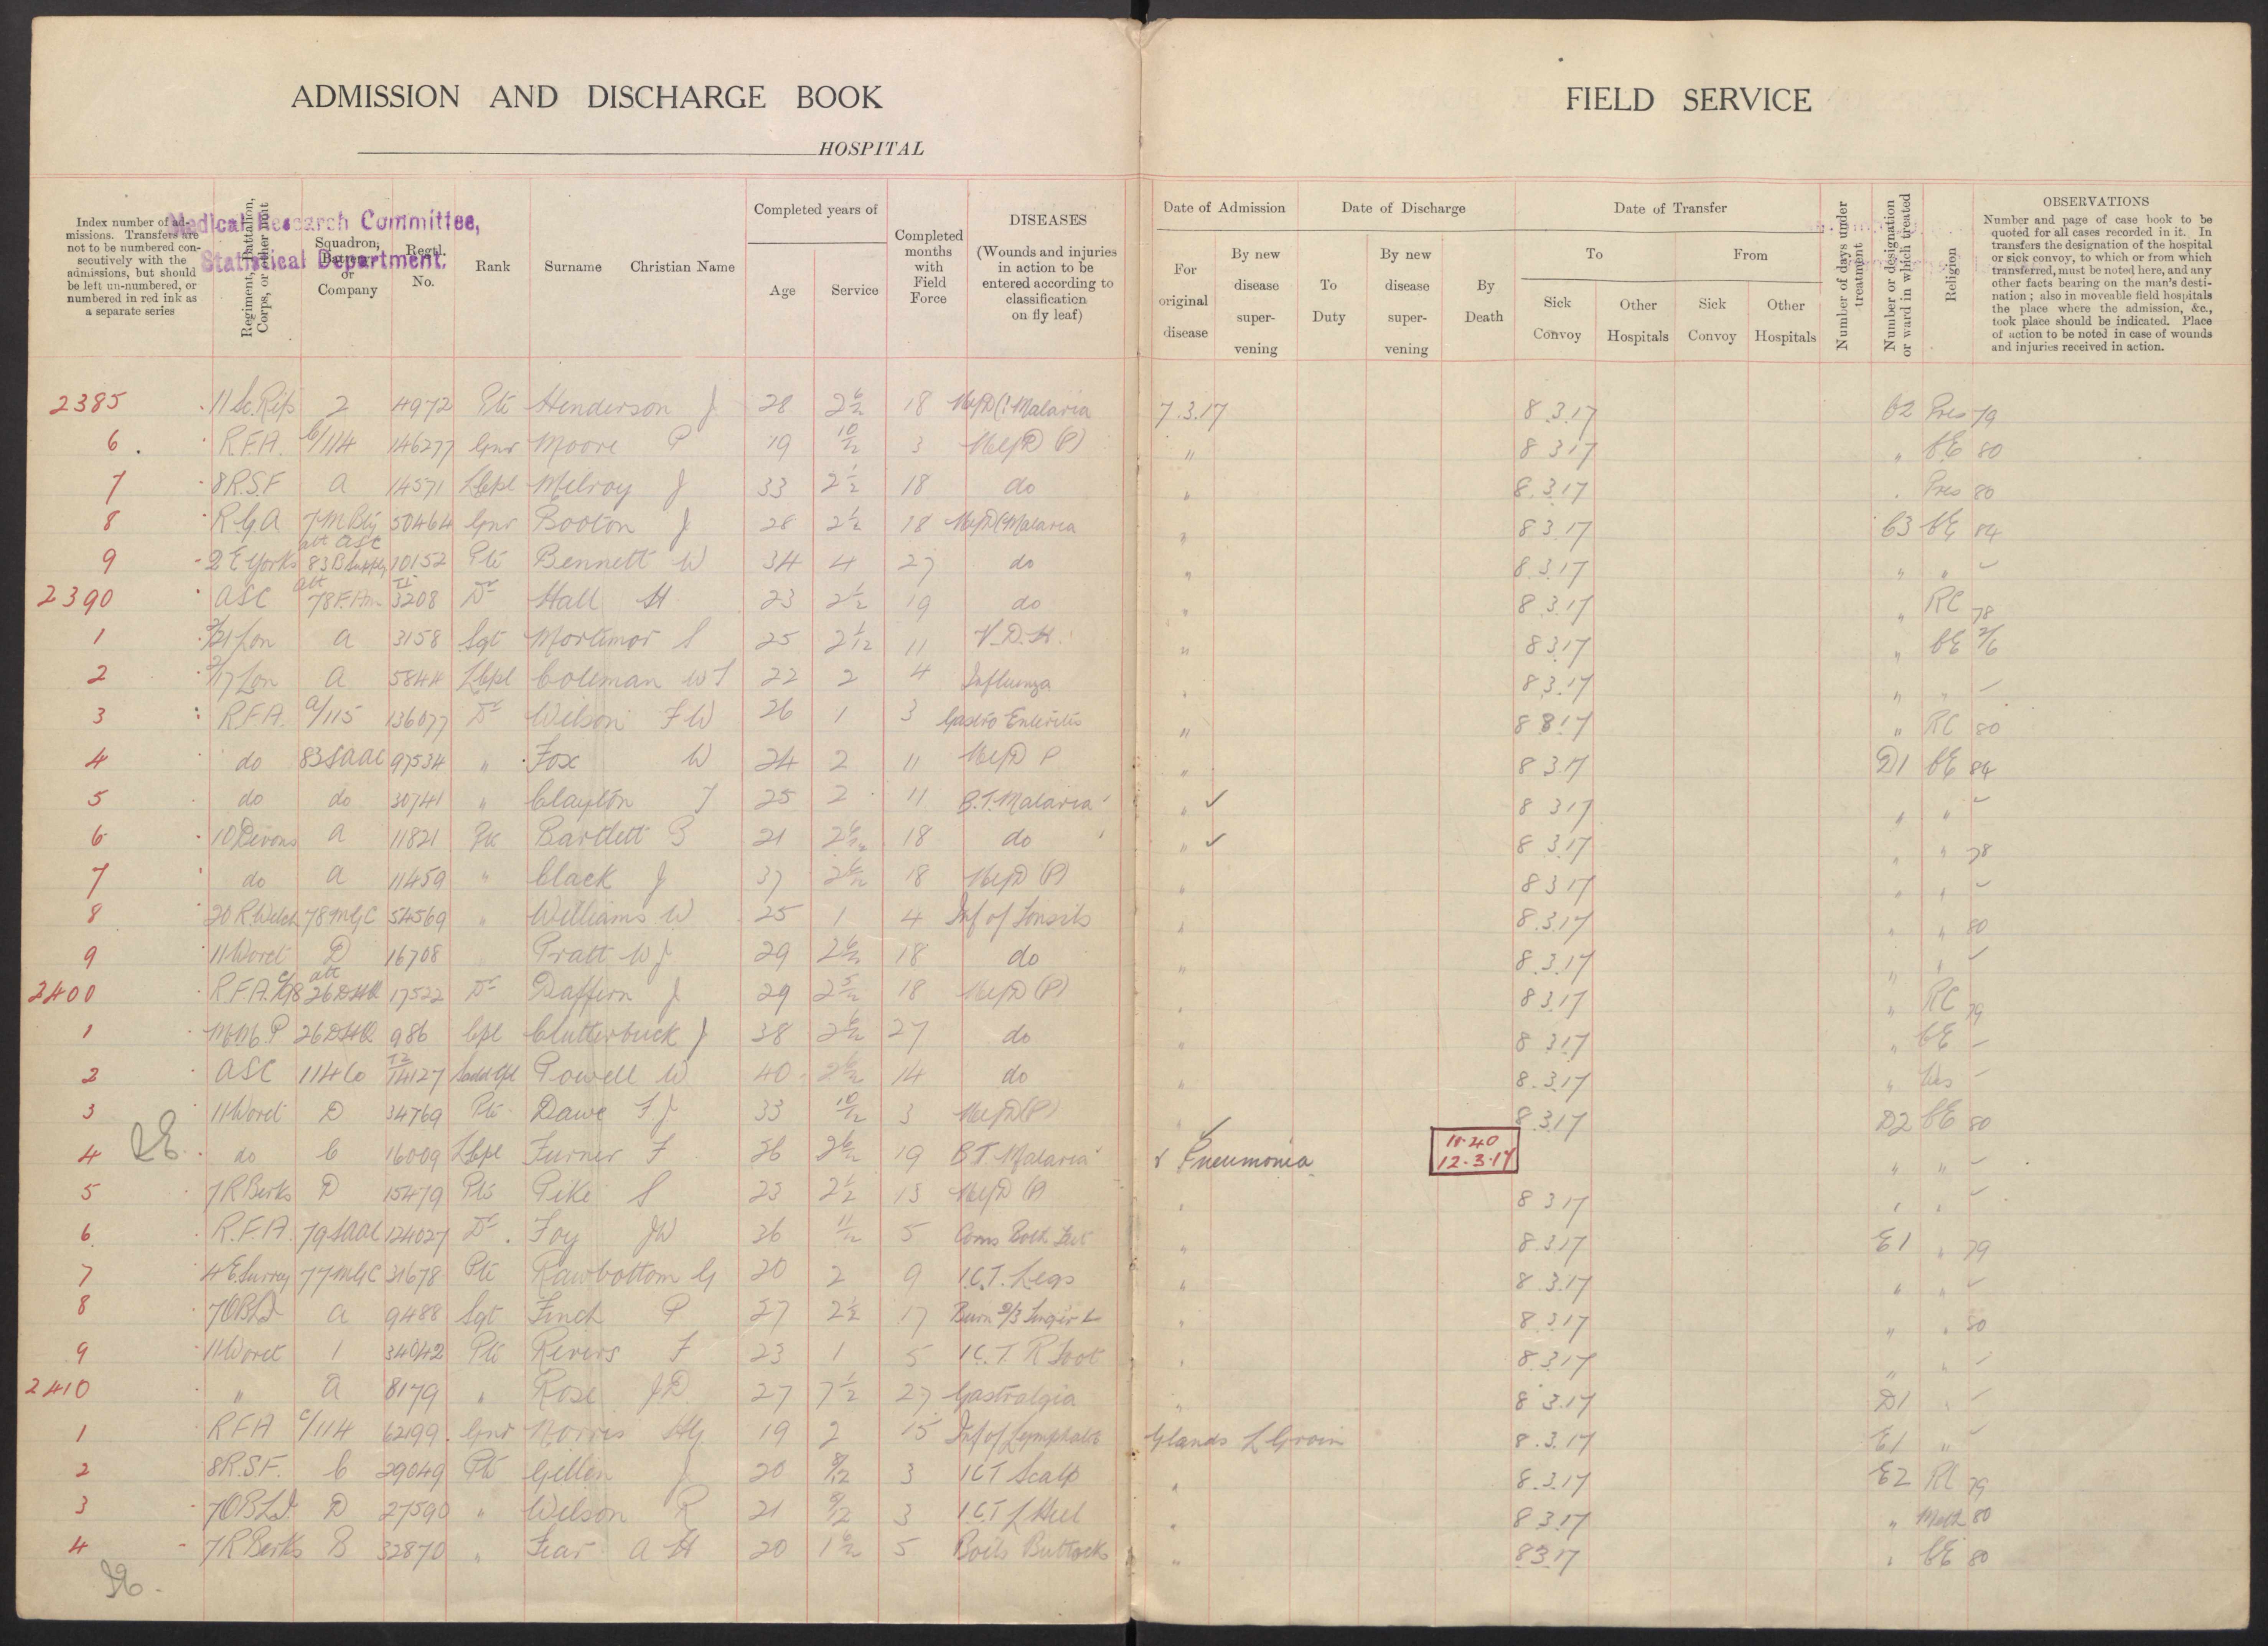 ADMISSION AND DISCHARGE BOOK
FIELD SERVICE
HOSPITAL
Medical Research Committee,
Statistical Department.
Index number of admissions. Transfers are not to be numbered consecutively with the admissions, but should be left un-numbered, or numbered in red ink as a separate series
Regiment, Battalion, Corps, or other unit
Squadron, Battery or Company
Regtl. No.
Rank
Surname Christian Name
Completed years of
Age Service
Completed months with Field Force
DISEASES
(Wounds and injuries in action to be entered according to classification on fly leaf)
Date of Admission
For original disease
By new disease supervening
Date of Discharge
To Duty
By new disease supervening
By Death
Date of Transfer
To From
Sick Convoy
Other Hospitals
Sick Convoy
Other Hospitals
Number of days under treatment
Number or designation or ward in which treated
Religion
OBSERVATIONS
Number and page of case book to be quoted for all cases recorded in it. In transfers the designation of the hospital or sick convoy, to which or from which transferred, must be noted here, and any other facts bearing on the man's destination; also in moveable field hospitals the place where the admission, &c., took place should be indicated. Place of action to be noted in case of wounds and injuries received in action.
2385 11 Sc. Rifs 2 4972 Pte Henderson J 28 2 6/12 18 Malaria 7.3.17 8.3.17 C2 Pres 79
6 R.F.A. C/114 146277 Gnr Moore P 19 10/12 3 (P) " 8 3 17 " CE 80
7 8 R.S.F A 14571 LCpl Melroy J 33 2 1/2 18 do " 8.3.17 Pres 80
8 R.G.A 7 M Bty 50464 Gnr Booton J 28 2 1/2 18 Malaria " 8 3 17 C3 CE 84
9 2 E Yorks att ASC 83 B Supply 10152 Pte Bennett W 34 4 27 do " 8.3.17 " "
2390 ASC att 78 F. Am 3208 Dr Hall H 23 2 1/2 19 do " 8.3.17 " RC 78
1 2/21 Lon A 3158 Sgt Mortimor S 25 2 1/12 11 V.D.H. " 8 3.17 " CE 2/6
2 2/17 Lon A 5844 LCpl Coleman W T 22 2 4 Influenza " 8.3.17 " "
3 R.F.A. A/115 136077 Dr Wilson F W 26 1 3 Gastro Enteritis " 8 3 17 " RC 80
4 do 83 SAAC 97534 " Fox W 24 2 11 P " 8 3.17 D1 CE 84
5 do do 30741 " Clayton J 25 2 11 B.T. Malaria " ✓ 8 3 17 " "
6 10 Devons A 11821 Pte Bartlett B 21 2 6/12 18 do " ✓ 8 3.17 " " 78
7 do A 11459 " Clack J 37 2 6/12 18 (P) " 8 3 17 " "
8 20 R. Welch 78 MGC 54569 " Williams W 25 1 4 Inf of Tonsils " 8.3.17 " " 80
9 11 Worct D 16708 " Pratt W J 29 2 6/12 18 do " 8.3.17 " "
2400 R.F.A. att 26 DHQ 17522 Dr Daffern J 29 2 5/12 18 (P) " 8 3.17 " RC 79
1 M.M.P 26 DHQ 986 Cpl Clutterbuck J 38 2 6/12 27 do " 8 3.17 " CE
2 ASC 114 Co T2 14127 Sadd Cpl Powell W 40 2 6/12 14 do " 8.3.17 " Wes
3 11 Worct D 34769 Pte Dawe F J 33 10/12 3 (P) " 8.3.17 D2 CE 80
4 do C 16009 LCpl Turner F 26 2 6/12 19 B T Malaria & Pneumonia 11.40 12.3.17 " "
5 7 R Berks D 15479 Pte Pike S 23 2 1/2 13 (P) " 8 3 17 " "
6 R.F.A. 79 SAAC 124027 Dr. Foy J W 26 11/12 5 Corns Both Feet " 8.3.17 E1 " 79
7 4 E. Surrey 77 MGC 31678 Pte Rawbottom G 20 2 9 I.C.T. Legs " 8.3.17 " "
8 7 OBLI A 9488 Sgt Finch P 27 2 1/2 17 Burn 2/3 Finger L " 8 3 17 " " 80
9 11 Worct 1 34042 Pte Revers F 23 1 5 I.C.T. R Foot " 8.3.17 " "
2410 " A 8179 " Rose J D. 27 7 1/2 27 Gastralgia " 8 3.17 D1 "
1 RFA C/114 62199 Gnr Norris H G 19 2 15 Inf of Lymphatic Glands L Groin 8.3.17 E1 "
2 8 R.S.F. C 29049 Pte Gillon J 20 8/12 3 I C T Scalp " 8.3.17 E2 RC 79
3 7 OBLI. D 27590 " Wilson R 21 3 I.C.T L Heel " 8 3.17 " Meth 80
4 7 R Berks B 32870 " Fear A H 20 1 6/12 5 Boils Buttocks " 8.3.17 " CE 80